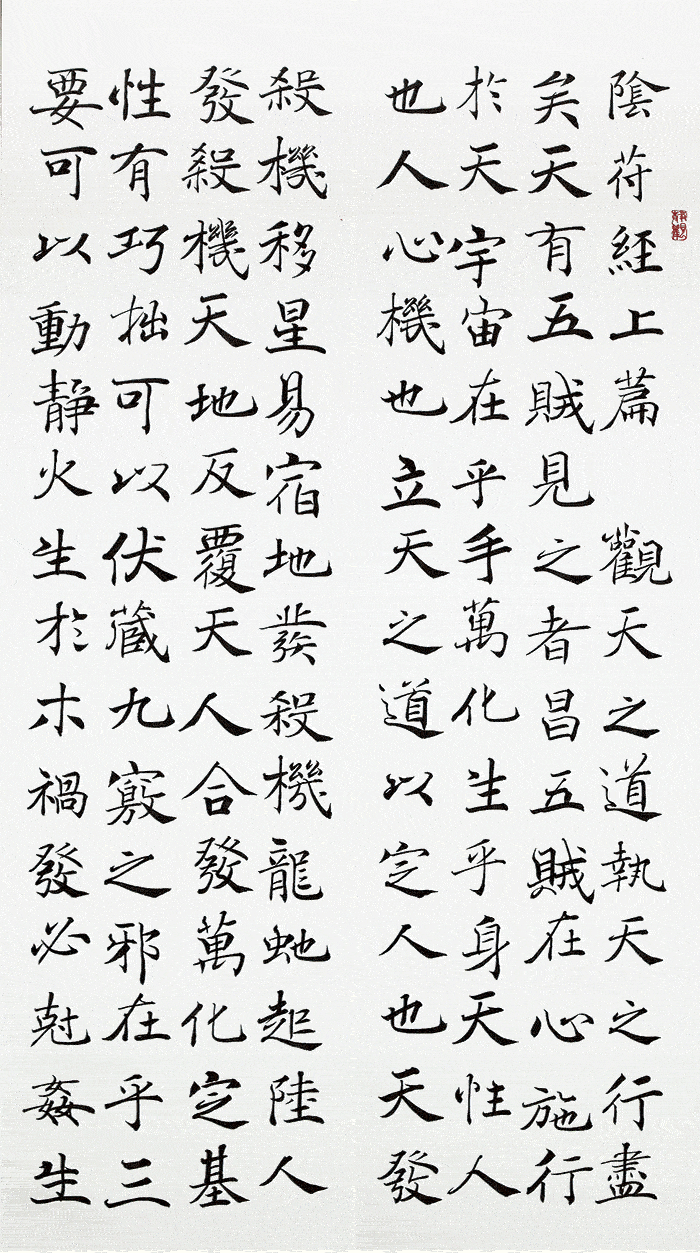 陰苻經上篇　觀天之道執天之行盡
矣天有五賊見之者昌五賊在心施行
於天宇宙在乎手萬化生乎身天性人
也人心機也立天之道以定人也天發
殺機移星易宿地發殺機龍虵起陸人
發殺機天地反覆天人合發萬化定基
性有巧拙可以伏藏九竅之邪在乎三
要可以動靜火生於木禍發必尅姦生